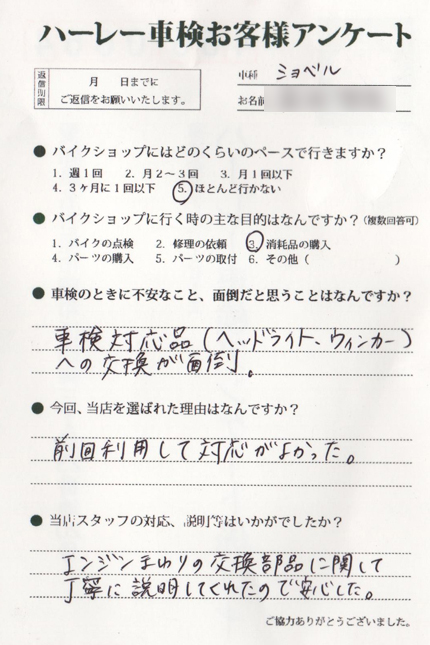 ハーレー車検お客様アンケート
返信期限
月 日までに
ご返信をお願いいたします。
車種 ショベル
お名前
● バイクショップにはどのくらいのペースで行きますか?
1. 週1回 2. 月2〜3回 3. 月1回以下
4. 3ヶ月に1回以下 5. ほとんど行かない
● バイクショップに行く時の主な目的はなんですか?(複数回答可)
1. バイクの点検 2. 修理の依頼 3. 消耗品の購入
4. パーツの購入 5. パーツの取付 6. その他( )
● 車検のときに不安なこと、面倒だと思うことはなんですか?
車検対応品(ヘッドライト、ウィンカー)
への交換が面倒。
● 今回、当店を選ばれた理由はなんですか?
前回利用して対応がよかった。
● 当店スタッフの対応、説明等はいかがでしたか?
エンジンまわりの交換部品に関して
丁寧に説明してくれたので安心した。
ご協力ありがとうございました。